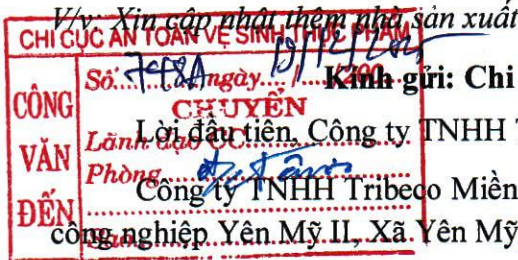 V/v: Xin cập nhật thêm nhà sản xuất
CHI CỤC AN TOÀN VỆ SINH THỰC PHẨM
CÔNG VĂN ĐẾN
Số ngày
Kính gửi: Chi
CHUYỂN
Lãnh đạo CC
Lời đầu tiên, Công ty TNHH
Phòng
Công ty TNHH Tribeco Miền
công nghiệp Yên Mỹ II, Xã Yên Mỹ